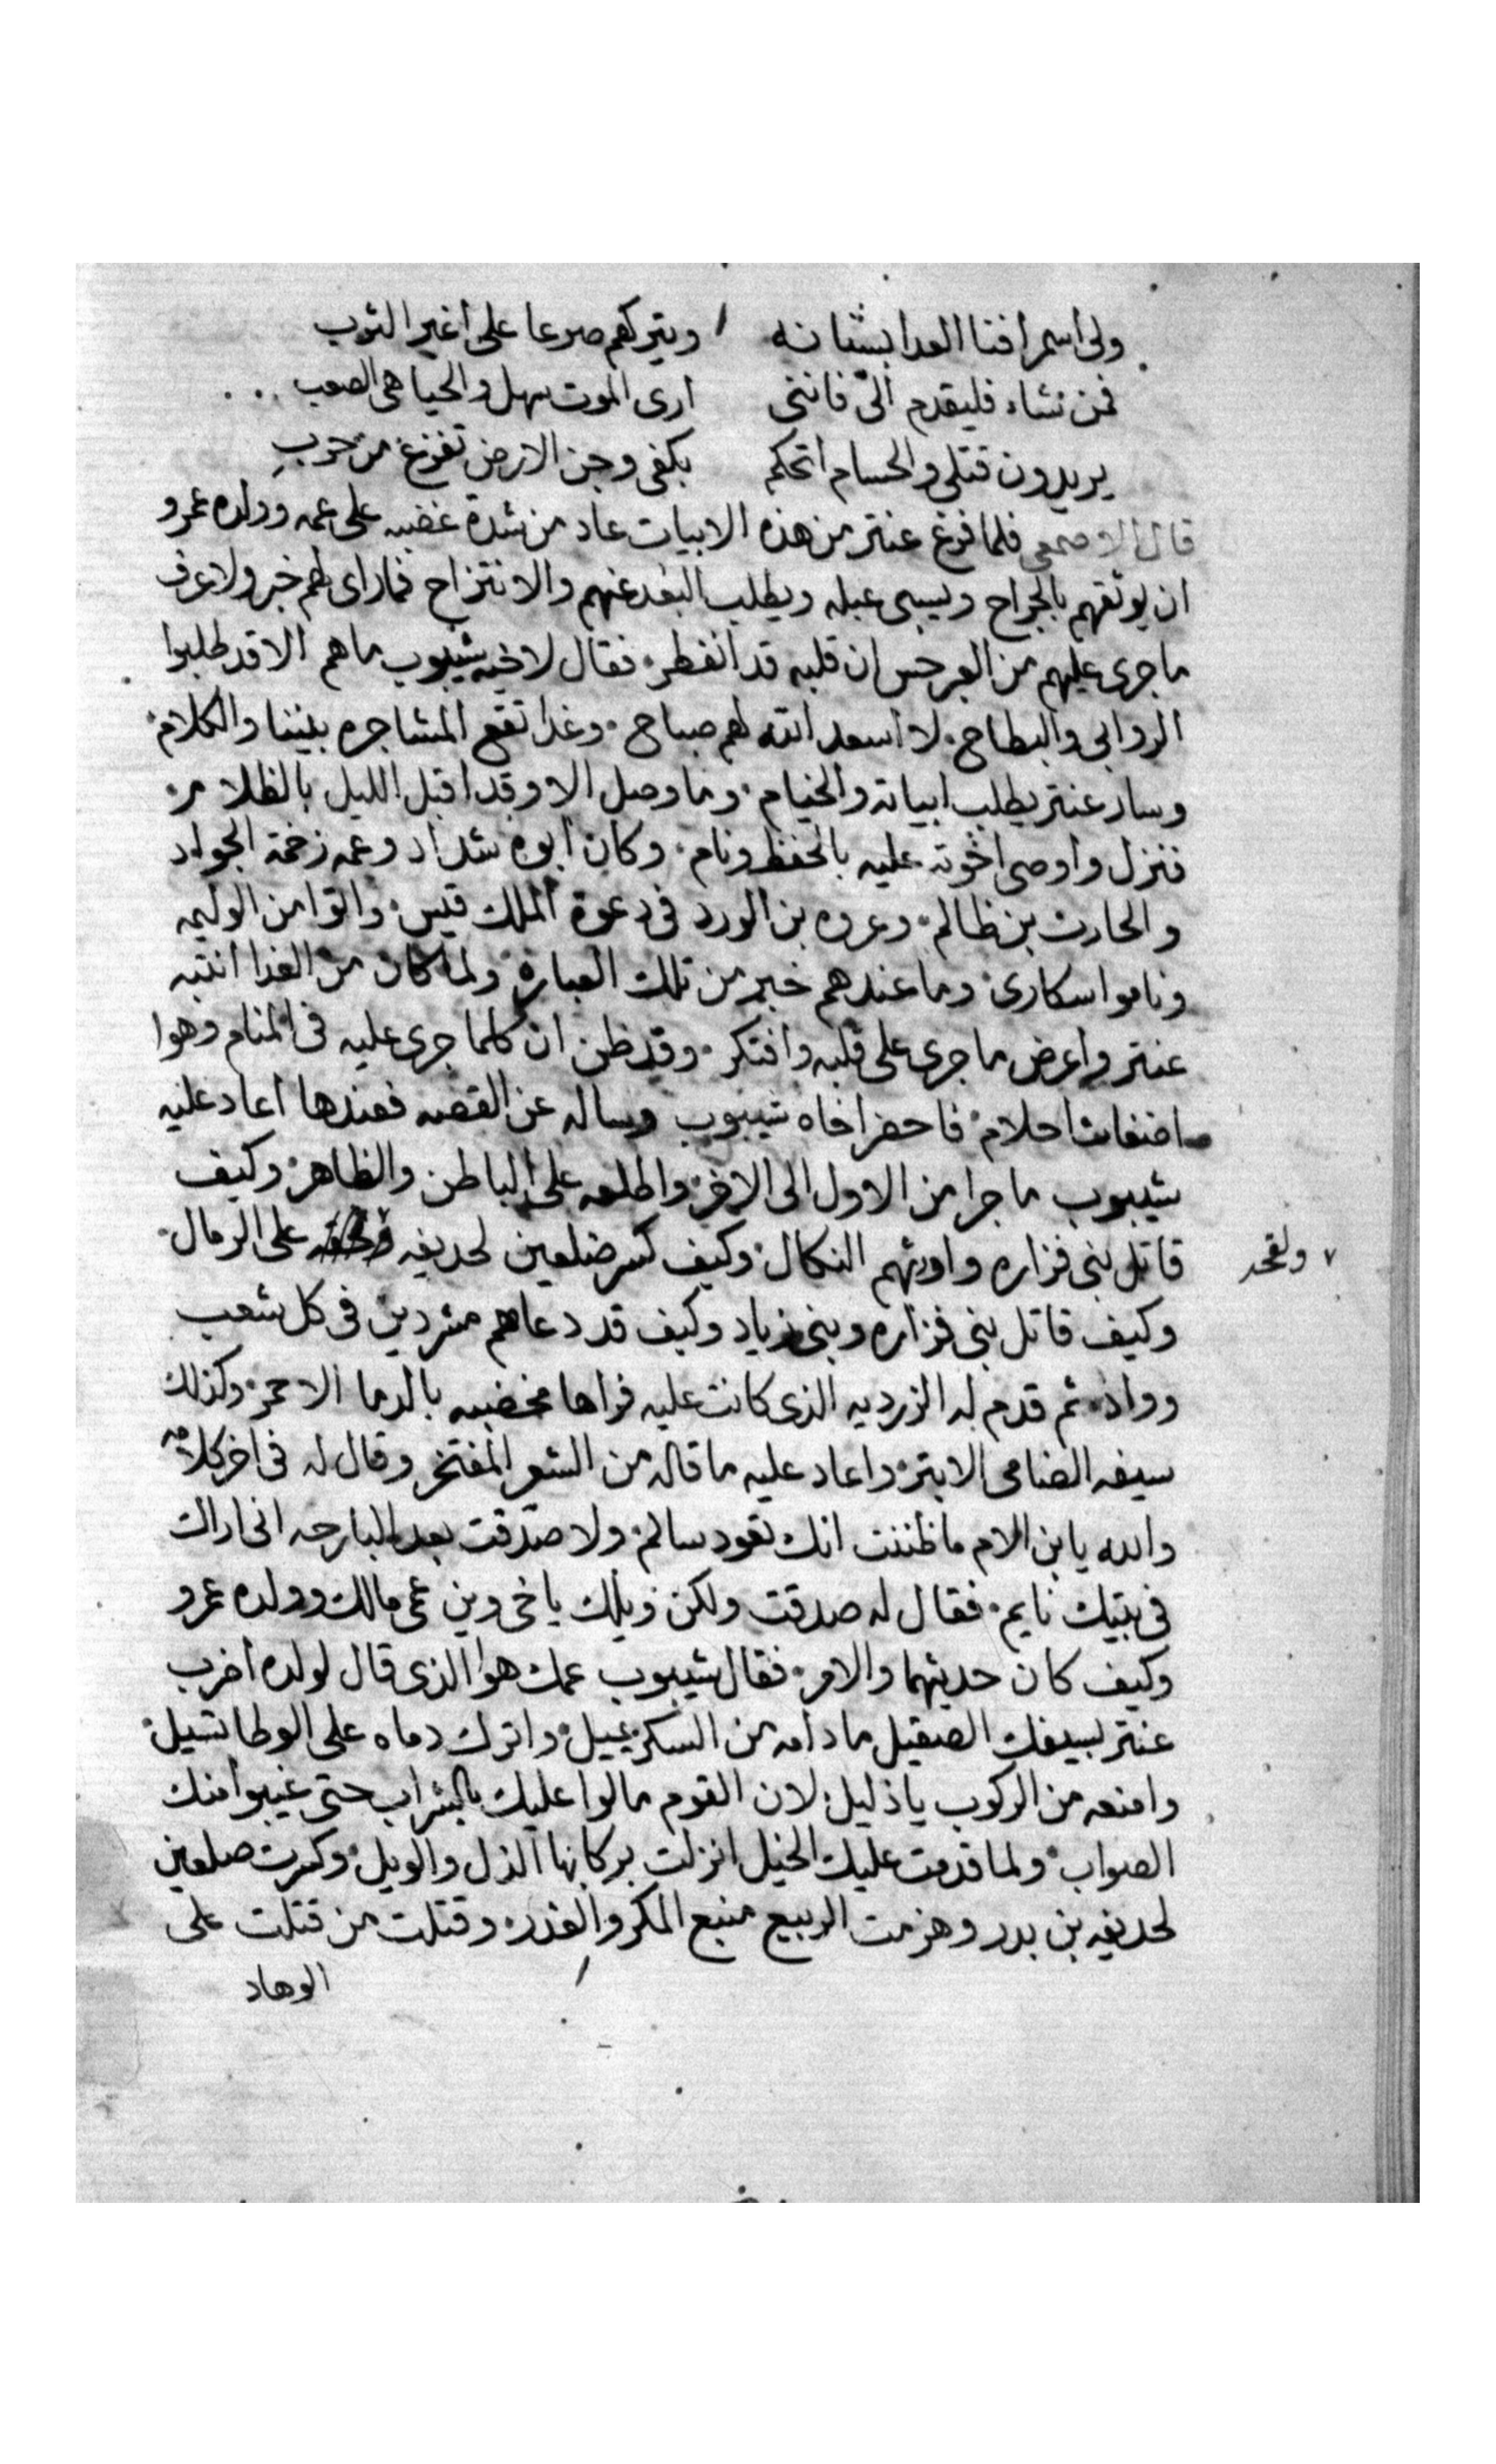 ولى اسمر افنا العدا بشنانه ويتركهم صرعا على اغبر الترب
فمن نشاء فليقدم الىّ فاننى ارى الموت سهل والحيا هى الصعب
يريدون قتلى والحسام اتحكم بكفى وجن الارض تفزع من حرب
قال الاصمعى فلما فرغ عنتر من هذه الابيات عاد من شدة غضبه على عمه وولده عمرو
ان يوثقهم بالجراح ويسبى عبله ويطلب البعد عنهم والانتزاح فما راى لهم خبر ولا عرف
ما جرى عليهم من العبر حس ان قلبه قد انفطر فقال لاخيه شيبوب ما هم الا قد طلبوا
الروابى والبطاح لا اسعد الله لهم صباح وغدا تقع المشاجره بيننا والكلام
وسار عنتر يطلب ابياته والخيام وما وصل الا وقد اقبل الليل بالظلام
فنزل واوصى اخوته عليه بالحفظ ونام وكان ابوه شداد وعمه زخمة الجواد
والحارث بن ظالم وعروه بن الورد فى دعوة الملك قيس واتوا من الوليمه
وناموا سكارى وما عندهم خبر من تلك العباره ولما كان من الغدا انتبه
عنتر واعرض ما جرى على قلبه وافتكر وقد ظن ان كلما جرى عليه فى المنام وهوا
اضغاث احلام فاحضر اخاه شيبوب وساله عن القصه فعندها اعاد عليه
شيبوب ما جرا من الاول الى الاخر واطلعه على الباطن والظاهر وكيف
قاتل بنى فزاره واورثهم النكال وكيف كسر ضلعين لحديفه على الرمال
ولقحه
وكيف قاتل بنى فزاره وبنى زياد وكيف قد دعاهم مشردين فى كل شعب
وواد ثم قدم له الزرديه الذى كانت عليه فراها مخضبه بالدما الاحمر وكذلك
سيفه الضامى الابتر واعاد عليه ما قاله من الشعر المفتخر وقال له فى اخر كلامه
والله يابن الام ما ظننت انك تعود سالم ولا صدقت بعد البارحه انى اراك
فى بيتك نايم فقال له صدقت ولكن ويلك ياخى وين عمى مالك وولده عمرو
وكيف كان حديثهما والامر فقال شيبوب عمك هوا الذى قال لولده اضرب
عنتر بسيفك الصقيل ما دامه من السكر يميل واترك دماه على الوطا تسيل
وامنعه من الركوب يا ذليل لان القوم مالوا عليك بالشراب حتى غيبوا منك
الصواب ولما قدمت عليك الخيل انزلت بركابها الذل والويل وكسرت ضلعين
لحديفه بن بدر وهزمت الربيع منبع المكر والغدر وقتلت من قتلت على
الوهاد